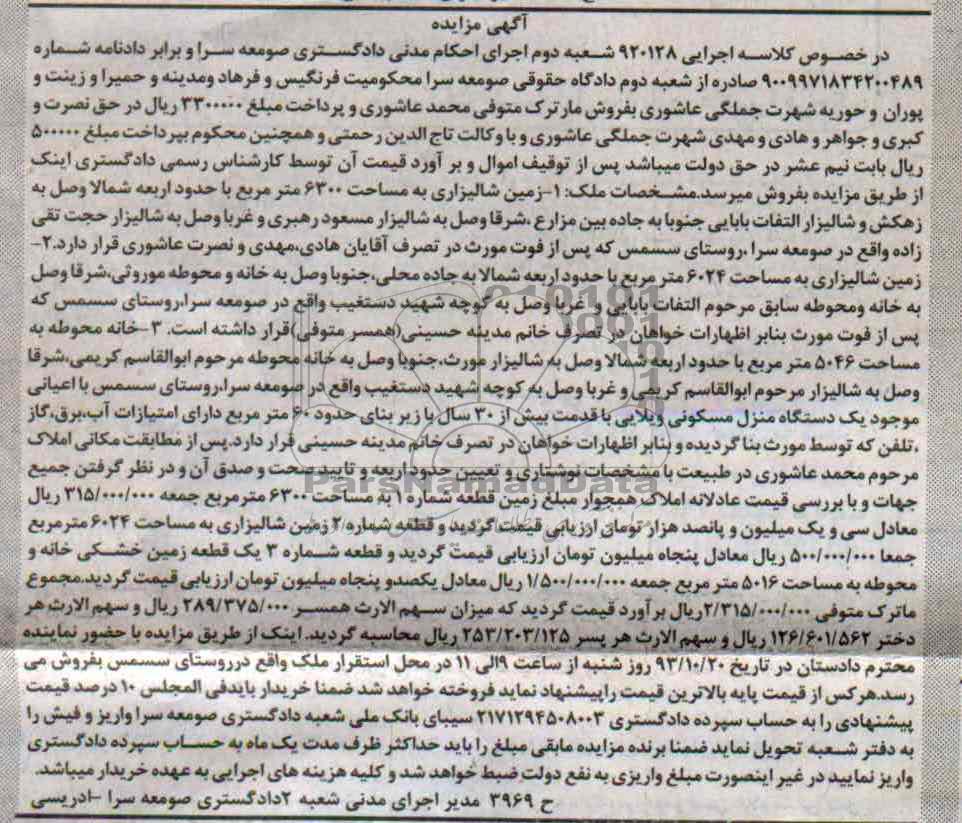 آگهی مزایده
در خصوص کلاسه اجرایی ۹۲۰۱۲۸ شعبه دوم اجرای احکام مدنی دادگستری صومعه سرا و برابر دادنامه شماره
۹۰۰۹۹۷۱۸۳۴۲۰۰۴۸۹ صادره از شعبه دوم دادگاه حقوقی صومعه سرا محکومیت فرنگیس و فرهاد ومدینه و حمیرا و زینت و
پوران و حوریه شهرت جملگی عاشوری بفروش مارترک متوفی محمد عاشوری و پرداخت مبلغ ۳۳۰۰۰۰۰ ریال در حق نصرت و
کبری و جواهر و هادی و مهدی شهرت جملگی عاشوری و با وکالت تاج الدین رحمتی و همچنین محکوم بپرداخت مبلغ ۵۰۰۰۰۰
ریال بابت نیم عشر در حق دولت میباشد پس از توقیف اموال و بر آورد قیمت آن توسط کارشناس رسمی دادگستری اینک
از طریق مزایده بفروش میرسد.مشخصات ملک: ۱-زمین شالیزاری به مساحت ۶۳۰۰ متر مربع با حدود اربعه شمالا وصل به
زهکش و شالیزار التفات بابایی جنوبا به جاده بین مزارع ،شرقا وصل به شالیزار مسعود رهبری و غربا وصل به شالیزار حجت تقی
زاده واقع در صومعه سرا ،روستای سسمس که پس از فوت مورث در تصرف آقایان هادی،مهدی و نصرت عاشوری قرار دارد.۲-
زمین شالیزاری به مساحت ۶۰۲۴ متر مربع با حدود اربعه شمالا به جاده محلی،جنوبا وصل به خانه و محوطه موروثی،شرقا وصل
به خانه ومحوطه سابق مرحوم التفات بابایی و غربا وصل به کوچه شهید دستغیب واقع در صومعه سرا،روستای سسمس که
پس از فوت مورث بنابر اظهارات خواهان در تصرف خانم مدینه حسینی(همسر متوفی)قرار داشته است. ۳-خانه محوطه به
مساحت ۵۰۴۶ متر مربع با حدود اربعه شمالا وصل به شالیزار مورث،جنوبا وصل به خانه محوطه مرحوم ابوالقاسم کریمی،شرقا
وصل به شالیزار مرحوم ابوالقاسم کریمی و غربا وصل به کوچه شهید دستغیب واقع در صومعه سرا،روستای سسمس با اعیانی
موجود یک دستگاه منزل مسکونی ویلایی با قدمت بیش از ۳۰ سال با زیر بنای حدود ۶۰ متر مربع دارای امتیازات آب،برق،گاز
،تلفن که توسط مورث بنا گردیده و بنابر اظهارات خواهان در تصرف خانم مدینه حسینی قرار دارد.پس از مطابقت مکانی املاک
مرحوم محمد عاشوری در طبیعت با مشخصات نوشتاری و تعیین حدود اربعه و تایید صحت و صدق آن و در نظر گرفتن جمیع
جهات و با بررسی قیمت عادلانه املاک همجوار مبلغ زمین قطعه شماره ۱ به مساحت ۶۳۰۰ مترمربع جمعه ۳۱۵/۰۰۰/۰۰۰ ریال
معادل سی و یک میلیون و پانصد هزار تومان ارزیابی قیمت گردید و قطعه شماره ۲ زمین شالیزاری به مساحت ۶۰۲۴ مترمربع
جمعا ۵۰۰/۰۰۰/۰۰۰ ریال معادل پنجاه میلیون تومان ارزیابی قیمت گردید و قطعه شماره ۳ یک قطعه زمین خشکی خانه و
محوطه به مساحت ۵۰۱۶ متر مربع جمعه ۱/۵۰۰/۰۰۰/۰۰۰ ریال معادل یکصدو پنجاه میلیون تومان ارزیابی قیمت گردید.مجموع
ماترک متوفی ۲/۳۱۵/۰۰۰/۰۰۰ریال بر آورد قیمت گردید که میزان سهم الارث همسر ۲۸۹/۳۷۵/۰۰۰ ریال و سهم الارث هر
دختر ۱۲۶/۶۰۱/۵۶۲ ریال و سهم الارث هر پسر ۲۵۳/۲۰۳/۱۲۵ ریال محاسبه گردید. اینک از طریق مزایده با حضور نماینده
محترم دادستان در تاریخ ۹۳/۱۰/۲۰ روز شنبه از ساعت ۹الی ۱۱ در محل استقرار ملک واقع درروستای سسمس بفروش می
رسد.هرکس از قیمت پایه بالاترین قیمت راپیشنهاد نماید فروخته خواهد شد ضمنا خریدار بایدفی المجلس ۱۰ درصد قیمت
پیشنهادی را به حساب سپرده دادگستری ۲۱۷۱۲۹۴۵۰۸۰۰۳ سیبای بانک ملی شعبه دادگستری صومعه سرا واریز و فیش را
به دفتر شعبه تحویل نماید ضمنا برنده مزایده مابقی مبلغ را باید حداکثر ظرف مدت یک ماه به حساب سپرده دادگستری
واریز نمایید در غیر اینصورت مبلغ واریزی به نفع دولت ضبط خواهد شد و کلیه هزینه های اجرایی به عهده خریدار میباشد.
ح ۳۹۶۹ مدیر اجرای مدنی شعبه ۲دادگستری صومعه سرا -ادریسی
ParsNamadData